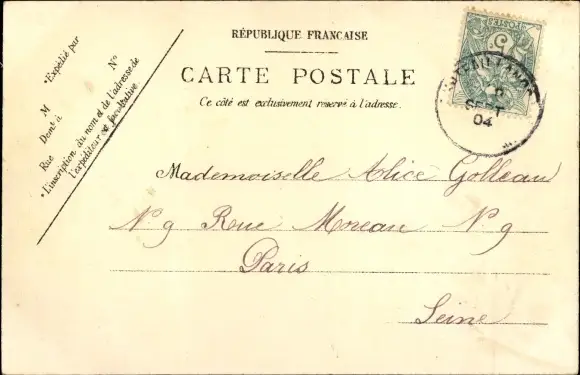 RÉPUBLIQUE FRANCAISE
CARTE POSTALE
Ce côté est exclusivement reservé à l'adresse.
*Expédié par
M
Demt à
Rue Nº
*L'inscription du nom et de l'adresse de
l'expéditeur est facultative.
POSTES
5
SEPT
04
Mademoiselle Alice Golleau
Nº 9 Rue Moreau Nº 9
Paris
Seine